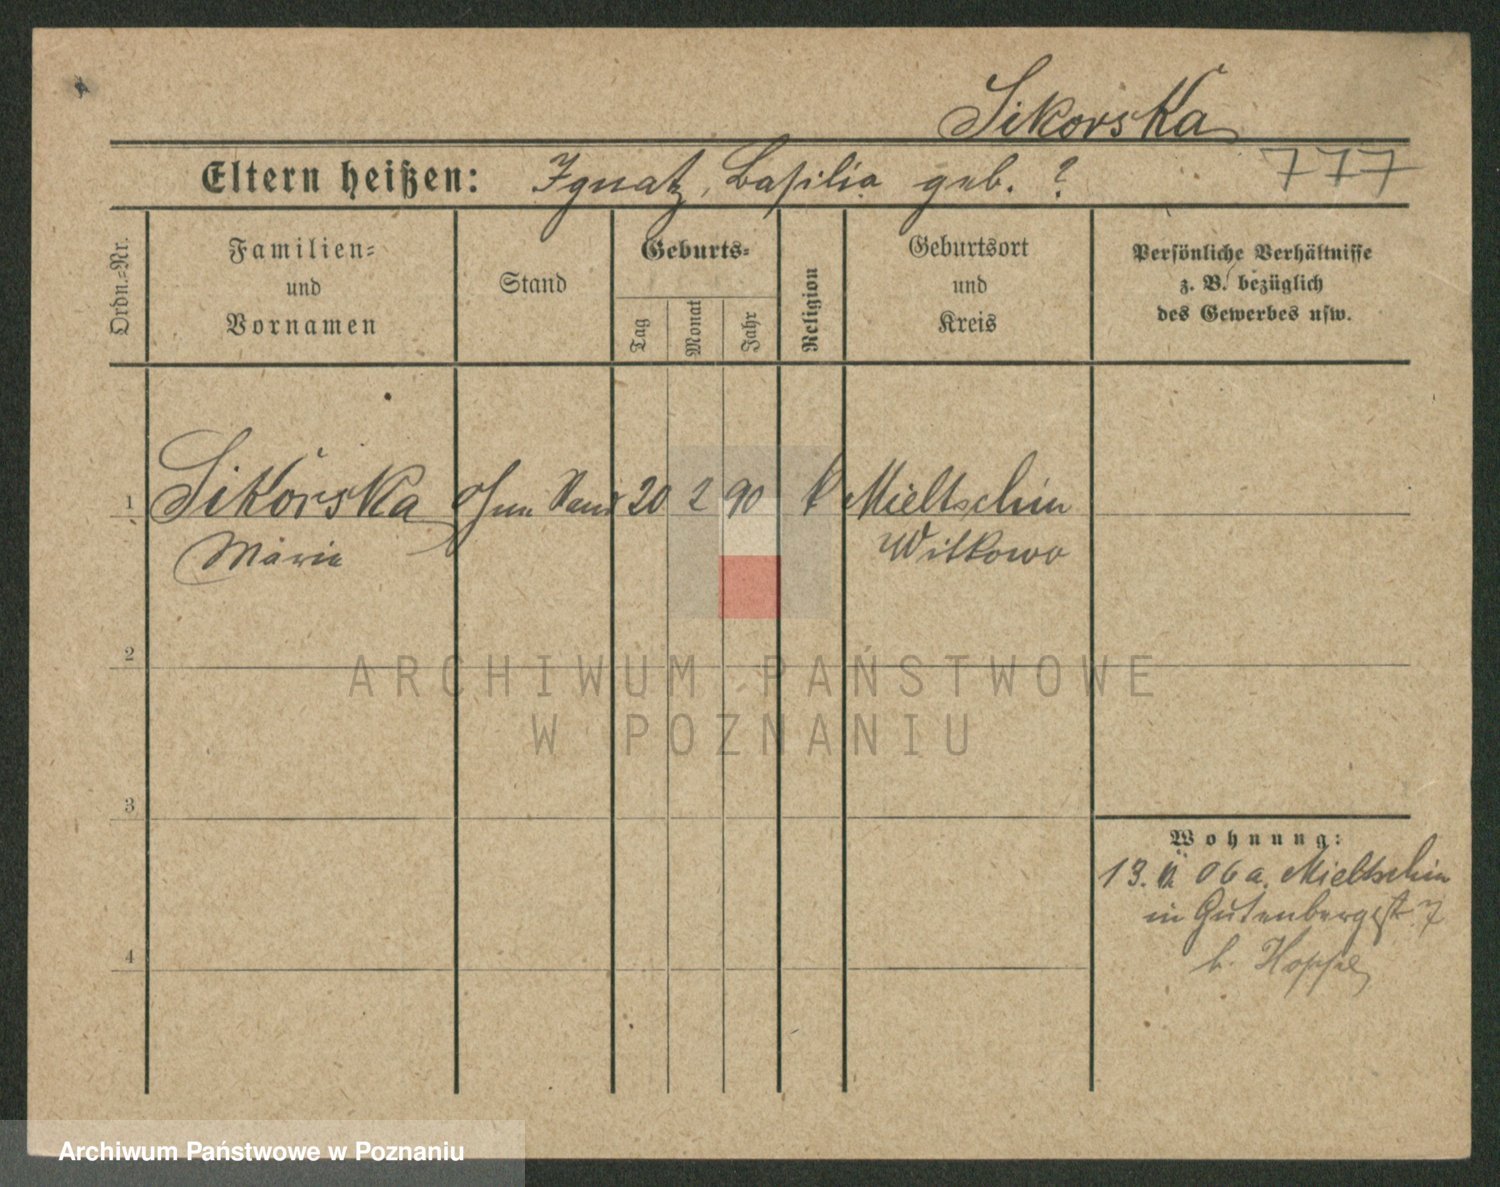 Sikorska
777
Eltern heißen: Ignatz, Basilia geb. ?
Ordn.=Nr.
Familien=
und
Vornamen
Stand
Geburts=
Tag
Monat
Jahr
Religion
Geburtsort
und
Kreis
Persönliche Verhältnisse
z. B. bezüglich
des Gewerbes usw.
1 Sikorska ohne Stand 20 2 90 k Mieltschin
Maria Witkowo
2
ARCHIWUM PAŃSTWOWE
W POZNANIU
3
Wohnung:
13. 06 a. Mieltschin
in Gutenbergst 7
b. Hoppe
4
Archiwum Państwowe w Poznaniu